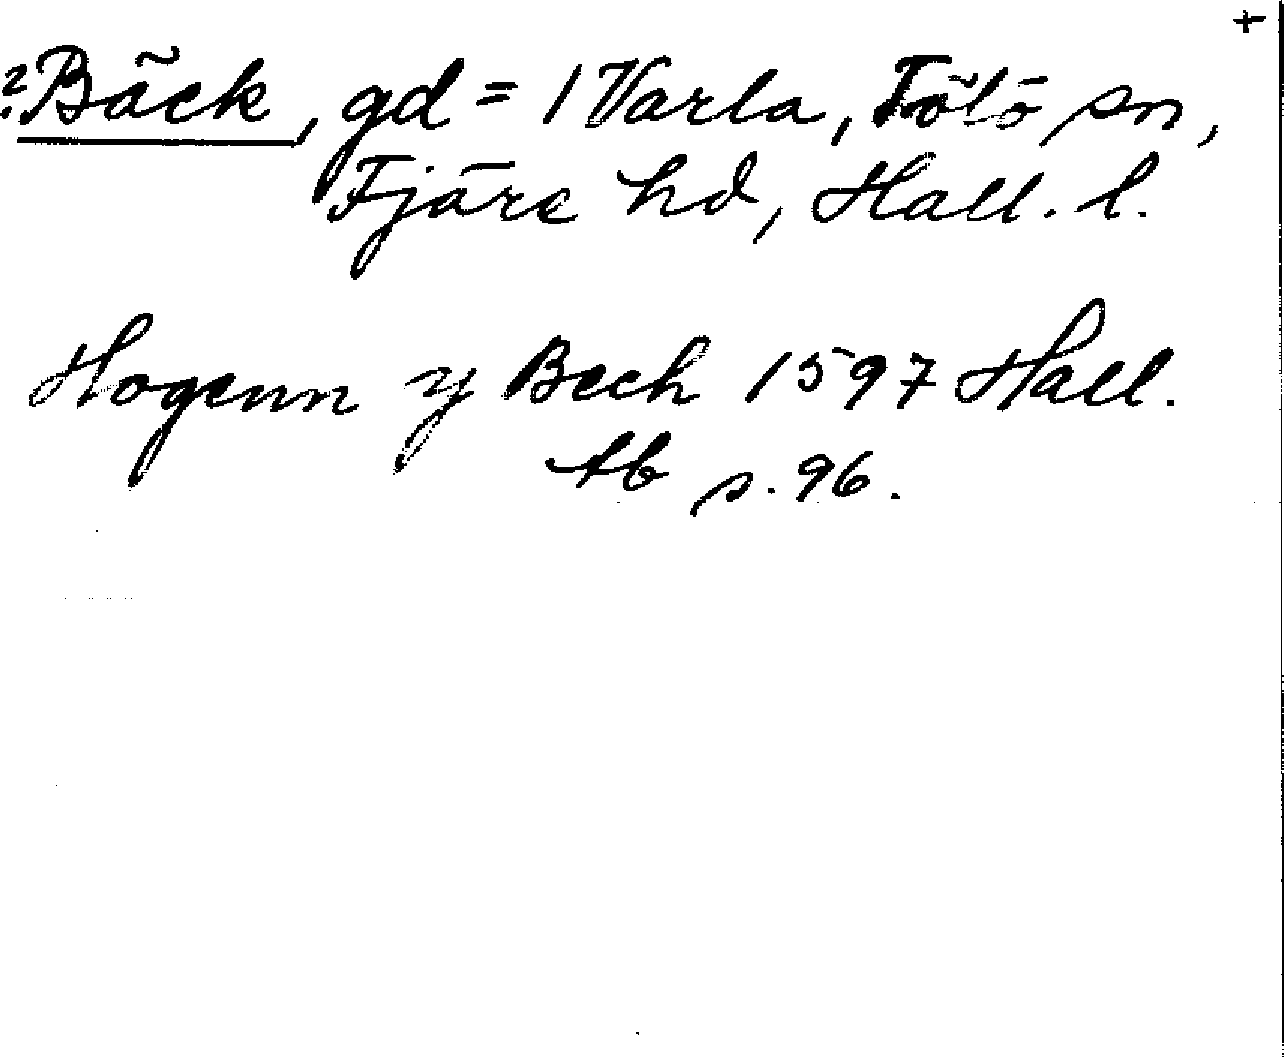 +
?Bäck, gd = 1 Varla, Tölö sn,
Fjäre hd, Hall. l.
Hogenn y Bech 1597 Hall.
Ab s. 96.